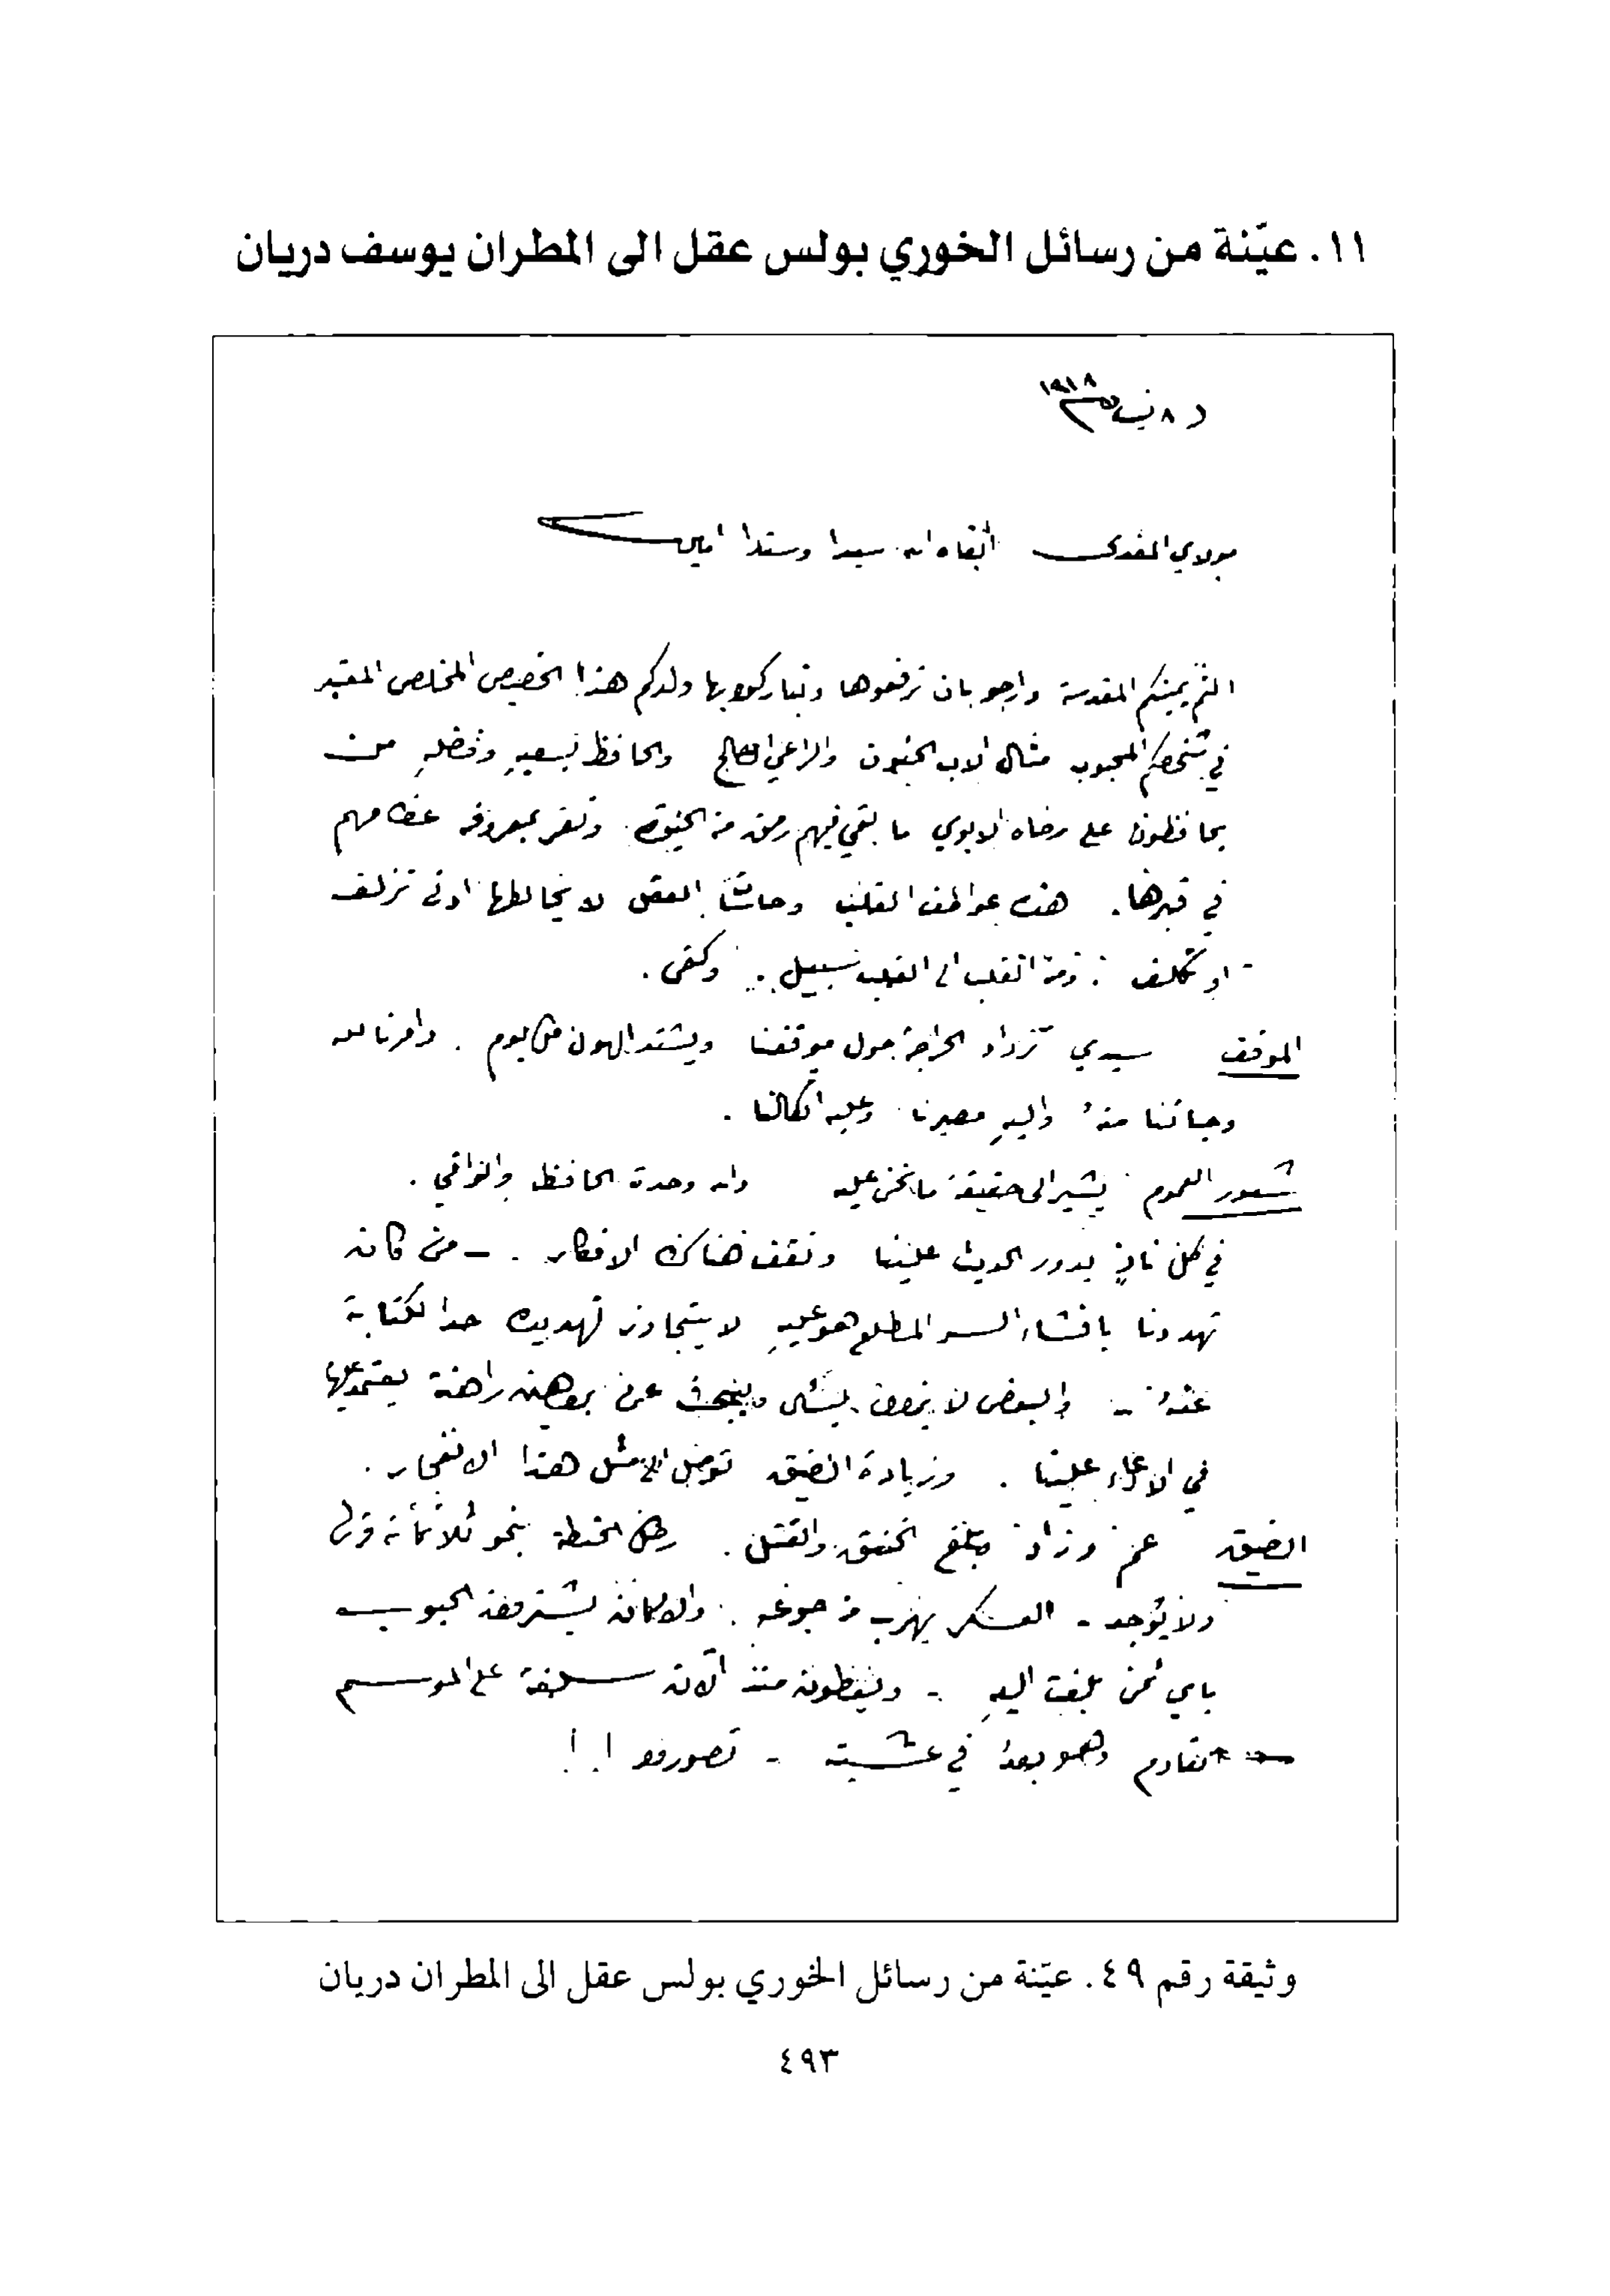 ١١. عيّنة من رسائل الخوري بولس عقل الى المطران يوسف دريان
٨ نيسان ١٩١٨
مولاي المفدى ابقاه الله سيدا وسندا امين
الثم يمينكم المقدسة وارجو بان ترفعوها وتباركوا بها ولدكم هذا الخصيص المخلص المعتبر
في شخصكم المحبوب مثال الاب الحنون والراعي الصالح والحافظ بسعيهِ وفضلهِ من
يحافظون على رضاه الابوي ما بقي فيهم رمق من الحيوة وتقر بمعروفه عظامهم
في قبرها. هذه عواطف القلب وحاشا العقل لا يخالطها ادنى تزلف
او تكلف : ومن القلب الى القلب سبيل. وكفى.
الموقف سيدي تزداد الحراجة حول موقفنا ويشتد الهون كل يوم . وامرنا لله
وحياتنا منهُ واليهِ مصيرنا وعليه اتكالنا .
شعور العموم يشير الى حقيقة ما نحن عليه والله وحدة الحافظ والواقي .
في كل نادٍ يدور الحديث علينا وتقف هناك الافكار . - من كان
تهددنا بافشاء السر المطلع هو عليهِ لا يتجاوز تهديده حد الكتابة
عنهُ - والبعض لا يزال يسأل ويبحث عن براهين راهنة يعتمد عليها
في الادعاء علينا . وزيادة الضيق توصل الى مثل هذا الانفجار .
الضيق عم وزاد وبلغ الخنق والقتل . رطل الحنطة بنحو ثلاثمائة قرش
ولا يُوجد - العسكر يهرب من جوعه . والالمان يشترون الحبوب
باي ثمن بلغت اليهِ - ويعطون منذ الآن سلفة على الموسم
القادم وهو بعدُ في عشبته - تصوروا ! !
وثيقة رقم ٤٩. عيّنة من رسائل الخوري بولس عقل الى المطران دريان
٤٩٣